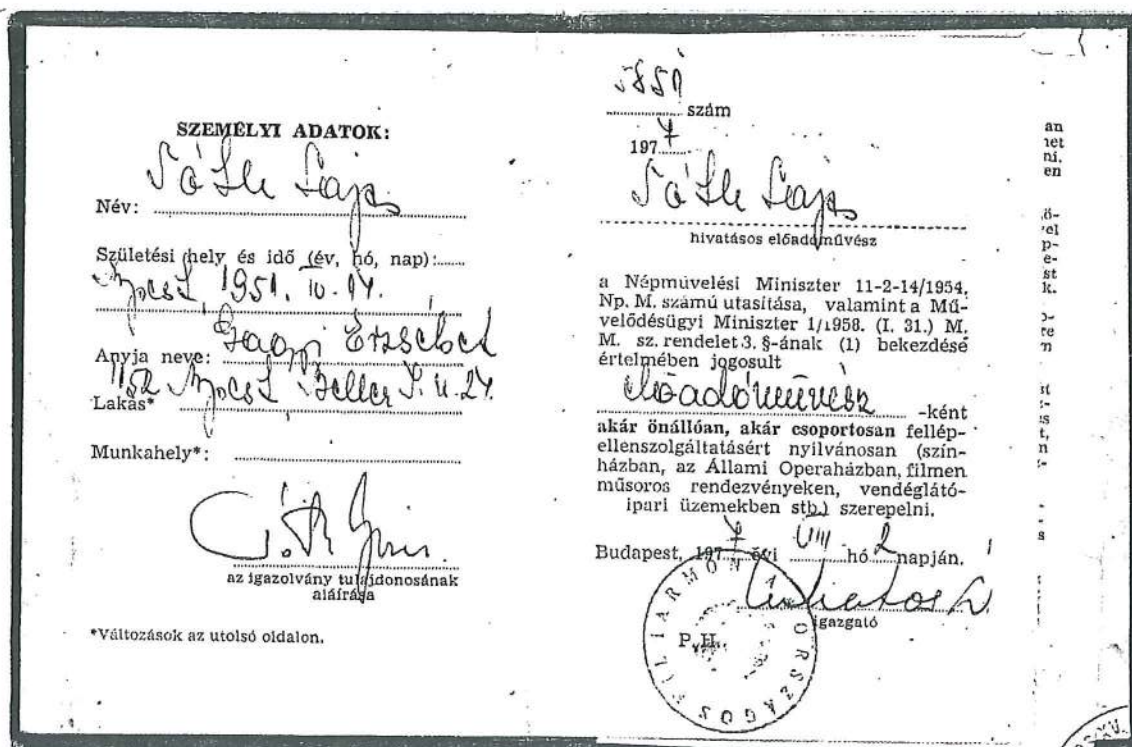 SZEMÉLYI ADATOK:
Név: Tóth Lajos
Születési hely és idő (év, hó, nap):
1951. IV. 14.
Anyja neve: Erzsébet
Lakás* u. 24.
Munkahely*:
az igazolvány tulajdonosának
aláírása
*Változások az utolsó oldalon.
5851 szám
1977
Tóth Lajos
hivatásos előadóművész
a Népművelési Miniszter 11-2-14/1954.
Np. M. számú utasítása, valamint a Mű-
velődésügyi Miniszter 1/1958. (I. 31.) M.
M. sz. rendelet 3. §-ának (1) bekezdése
értelmében jogosult
előadóművész -ként
akár önállóan, akár csoportosan fellép-
ellenszolgáltatásért nyilvánosan (szín-
házban, az Állami Operaházban, filmen
műsoros rendezvényeken, vendéglátó-
ipari üzemekben stb.) szerepelni.
Budapest, 1977 évi VIII hó 2 napján.
igazgató
P. H.
ORSZÁGOS FILHARMÓNIA